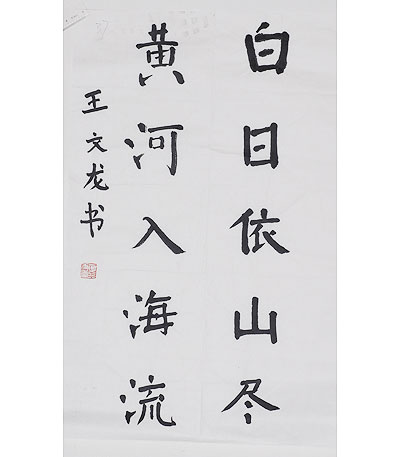 白日依山尽
黄河入海流
王文龙书